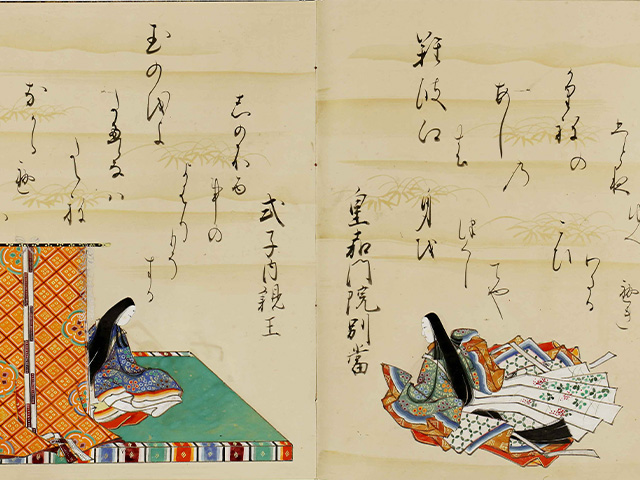 皇嘉門院別當
難波江
あしの
かりねの
身を
つくし
てや
こひ
わたる
式子内親王
玉の緒よ
たえなは
たえね
なからへ
は
しのふる
事の
よはり
もそ
する